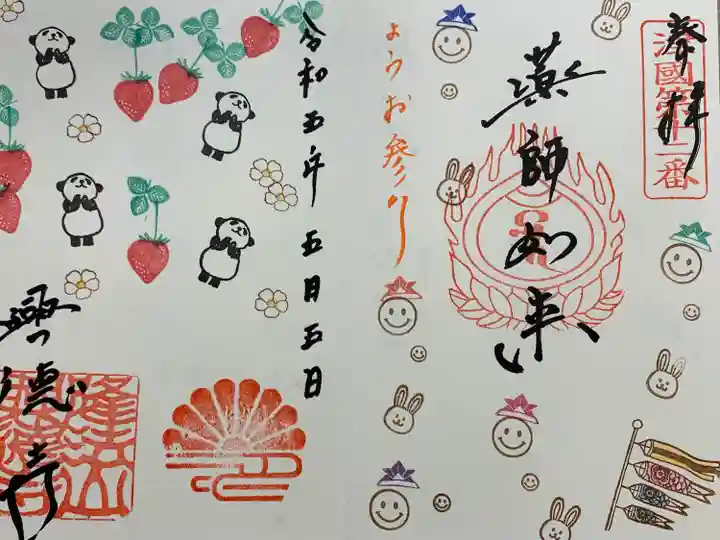 奉拝
津國第十二番
薬師如来
ようお参り
令和五年五月五日
興徳寺